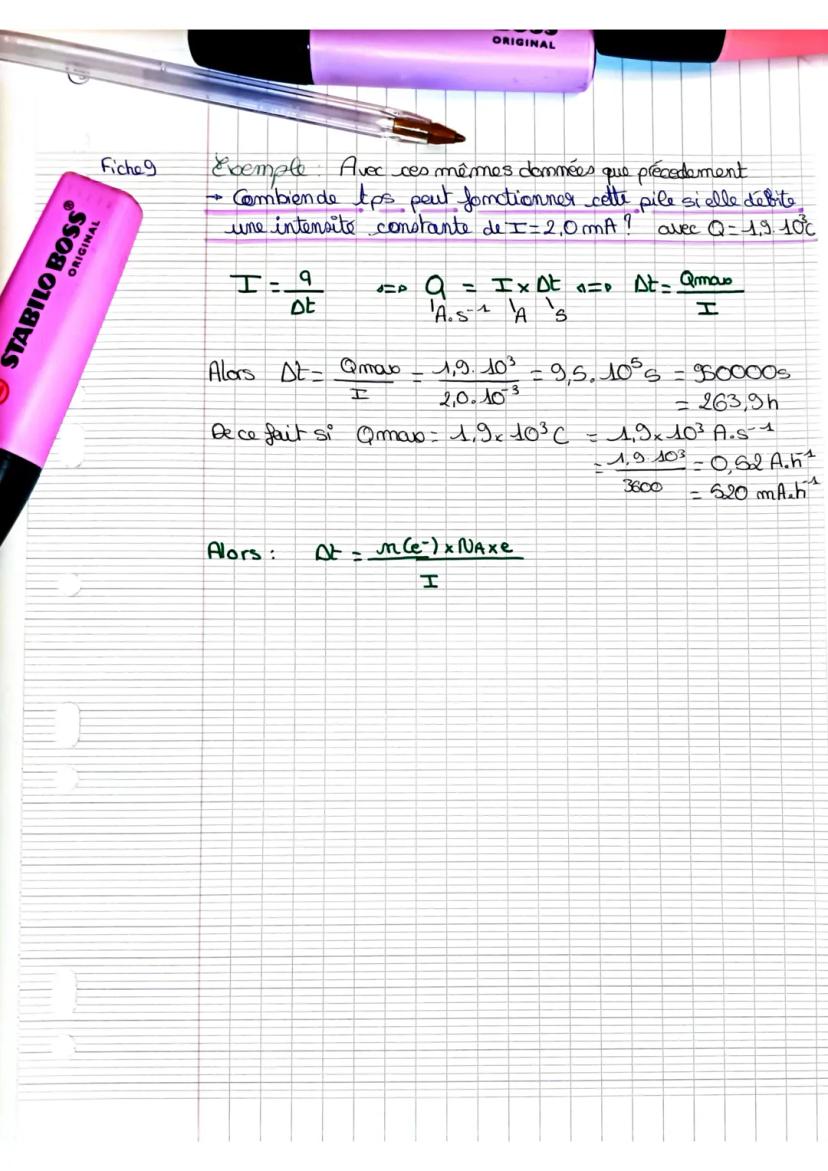 BOSS
ORIGINAL
STABILO BOSS®
ORIGINAL
Fiche 9
Exemple : Avec ces mêmes données que précedament
→ Combien de tps peut fonctionner cette pile si elle débite
une intensité constante de I = 2,0 mA ? avec Q = 1,9. 10³C
I = q/Δt <=> Q = I × Δt <=> Δt = Qmax/I
A.s⁻¹ A s
Alors Δt = Qmax/I = 1,9. 10³/2,0. 10⁻³ = 9,5. 10⁵ s = 950000s
= 263,9 h
De ce fait si Qmax = 1,9 × 10³ C = 1,9 × 10³ A.s⁻¹
= 1,9 10³/3600 = 0,52 A.h⁻¹
= 520 mA.h⁻¹
Alors : Δt = n(e⁻) × NA × e/I